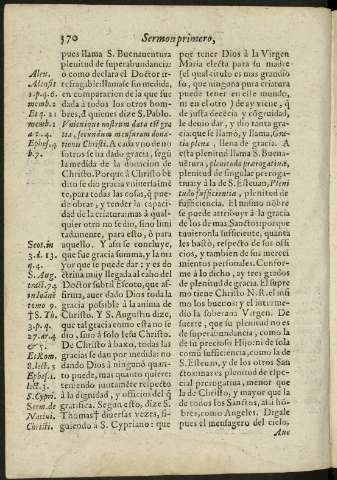 370
Sermon primero,
pues llama S. Buenauentura
plenitud de superabundancia:
ò como declara el Doctor ir-
refragable: llamase su medida,
en comparacion de la que fue
dada à todos los otros hom-
bres, dᵈ quienes dize S. Pablo.
Vnicuique nostrum data est gra
tia, secundum mensuram dona-
tionis Christi. A cada vno de no
sotros se ha dado gracia, segũ
la medida de la donacion de
Christo. Porque à Christo bẽ
dito se dio gracia vniuersalmẽ
te, para todas las cosas, q̃ pue-
de obrar, y tender la capaci-
dad de la criatura: mas à qual-
quier otro no se dio, sino limi
tadamente, para esto, ò para
aquello. Y assi se concluye,
que fue gracia summa, y la ma
yor que se puede dar, y es do-
ctrina muy llegada al cabo del
Doctor subtil Escoto, que af-
firma, auer dado Dios toda la
gracia possible à la anima de
Christo. Y S. Augustin dize,
que tal gracia como esta no se
dio, sino à solo Iesu Christo.
De Christo à baxo, todas las
gracias se dan por medida: no
dando Dios à ninguno quan-
to puede, mas quanto quiere:
teniendo juntamẽte respecto
à la dignidad, y officios del q̃
gratifica. Segun esto, dize S.
Thomas† diuersas vezes, si-
guiendo à S. Cypriano: que
Alex.
Alensis
3.p.q.6.
memb.2
Et q.21
memb.2
ar.4.
Ephes.4
b.7.
Scot.in
3.d.13.
q.4.
S. Aug.
tract.74
in Ioanẽ
tomo 9.
†S. Th.
3.p.q.
27.ar.4
&5.
Et Rom.
8.lect.5
Ephes.1.
lect.3.
S. Cypri.
Serm.de
Natiui.
Christi.
por tener Dios à la Virgen
Maria electa para su madre
(el qual titulo es mas grandio
so, que ninguna pura criatura
pueda tener en este mundo,
ni en el otro) de ay viene, q̃
de justa decẽcia y cõgruidad,
le deuio dar, y dio tanta gra-
cia que le llamò, y llama, Gra-
tia plena, llena de gracia. A
esta plenitud llama S. Buena-
uẽtura, plenitudo prerogatiua,
plenitud de singular preroga-
tiua: y à la de S. Esteuan, Pleni
tudo sufficientia, plenitud de
sufficiencia. El mismo nõbre
se puede attribuyr à la gracia
de los de mas Sanctos: porque
tauieron la sufficiente, quanta
les bastò, respecto de sus offi
cios, y tambien de sus mereci
mientos personales. Confor-
me à lo dicho, ay tres grados
de plenitud de gracia. El supre
mo tiene Christo N.R. el infi
mo los buenos: y el interme-
dio la soberana Virgen. De
suerte, que su plenitud no es
de superabundancia, como la
de su precioso Hijo: ni de sola
comũ sufficiencia, como la de
S. Esteuan, y de los otros San
ctos: mas es plenitud de espe-
cial prerogatiua, menor que
la de Christo, y mayor que la
de todos los Sanctos, assi hõ-
bres, como Angeles. Digale
pues el mensagero del cielo,
Aue